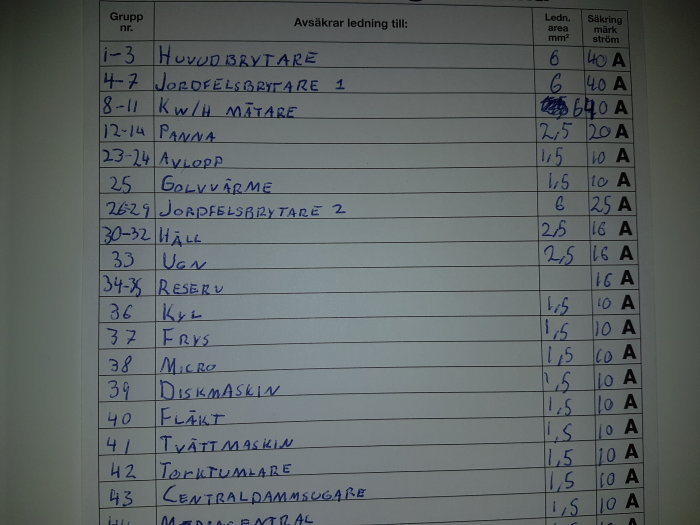 Grupp nr. Avsäkrar ledning till: Ledn. area mm² Säkring märk ström
1-3 HUVUDBRYTARE 6 40 A
4-7 JORDFELSBRYTARE 1 6 40 A
8-11 KW/H MÄTARE 6 40 A
12-14 PANNA 2,5 20 A
23-24 AVLOPP 1,5 10 A
25 GOLVVÄRME 1,5 10 A
26-29 JORDFELSBRYTARE 2 6 25 A
30-32 HÄLL 2,5 16 A
33 UGN 2,5 16 A
34-35 RESERV 16 A
36 KYL 1,5 10 A
37 FRYS 1,5 10 A
38 MICRO 1,5 10 A
39 DISKMASKIN 1,5 10 A
40 FLÄKT 1,5 10 A
41 TVÄTTMASKIN 1,5 10 A
42 TORKTUMLARE 1,5 10 A
43 CENTRALDAMMSUGARE 1,5 10 A
44 MEDIACENTRAL 1,5 10 A